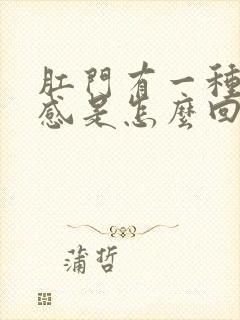 肛門有一種
感是怎麼回
蒲哲